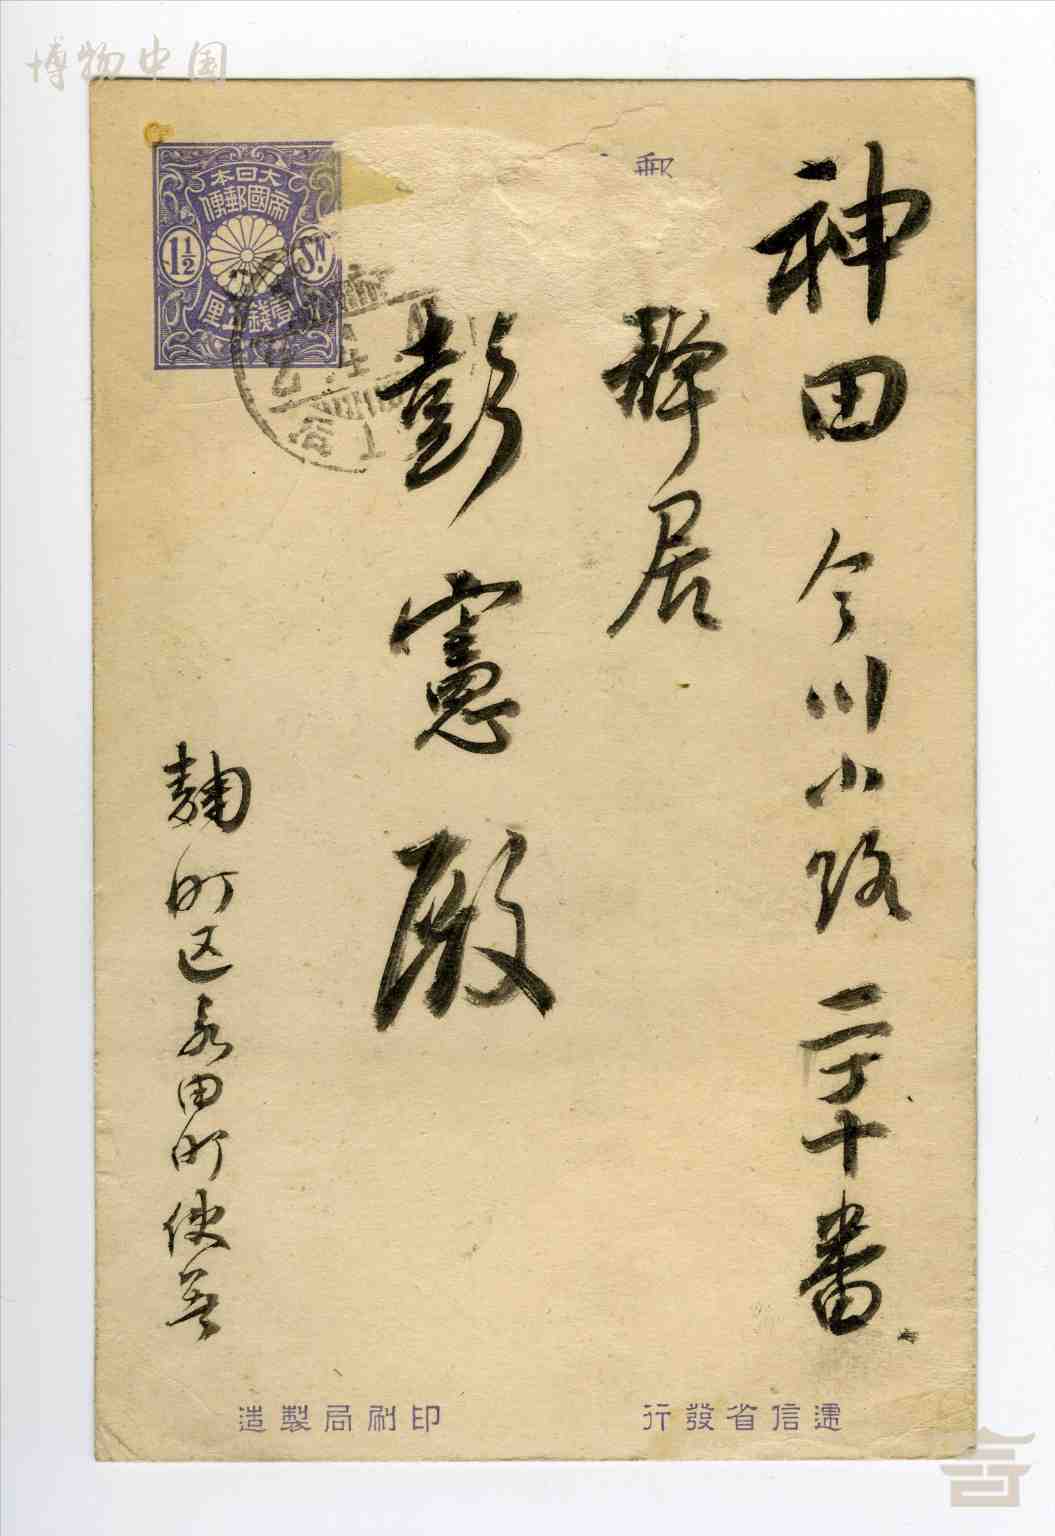 博物中国
大日本
帝國郵便
1½
SN.
壹錢五厘
郵
神田今川小路二丁十番
靜居
彭憲殿
麹町区永田町使署
遞信省發行
印刷局製造